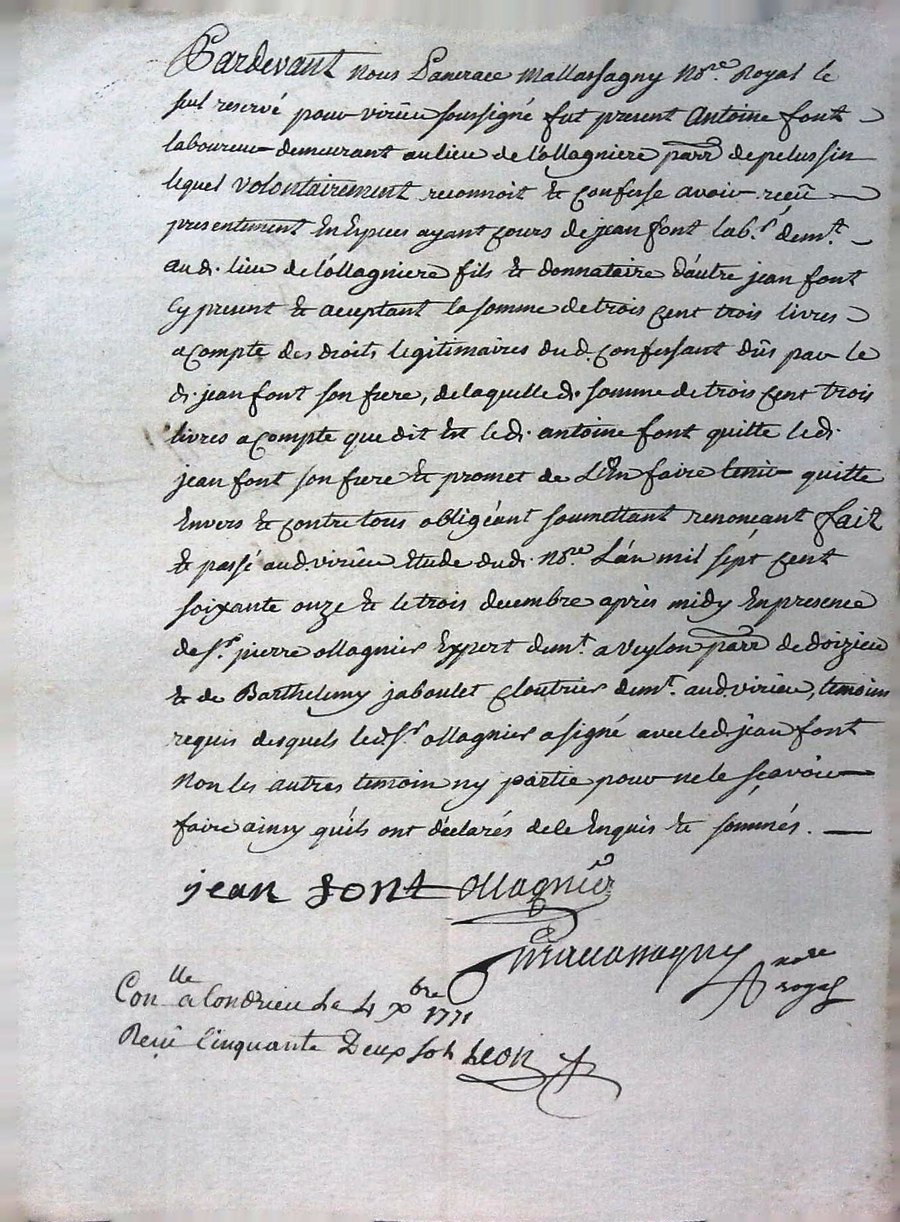 Pardevant nous Pancrace Mallassagny No.re Royal le
seul reservé pour virieu soussigné fut present Antoine font
laboureur demeurant au lieu de L'ollagniere parr. de pelussin
lequel volontairement reconnoit & confesse avoir reçû
presentement En Especes ayant cours de jean font lab.r dem.t
au d. lieu de L'ollagniere fils & donnataire d'autre jean font
Cy present & acceptant la somme de trois cent trois livres
a compte des droits legitimaires du d. confessant dûs par le
d. jean font son frere, de laquelle d. somme de trois cent trois
livres a compte que dit Est le d. antoine font quitte le d.
jean font son frere & promet de L'En faire tenir quitte
Envers & contre tous obligéant soumettant renonçant fait
& passé aud. virieu Etude du d. No.re L'an mil sept cent
soixante onze & le trois decembre après midy En presence
de s.r pierre ollagnier Expert dem.t a Veylon parr. de doizieu
& de Barthelemy jaboulet cloutrier dem.t aud. virieu, temoins
requis desquels led. s.r ollagnier a signé avec led. jean font
Non les autres temoin ny partie pour ne le sçavoir
faire ainsy qu'ils ont déclarés de ce Enquis & sommés.
jean font ollagnier
Mallassagny no.re royal
Con.lle a Condrieu Le 4 X.bre 1771
Reçu Cinquante Deux sols Leon